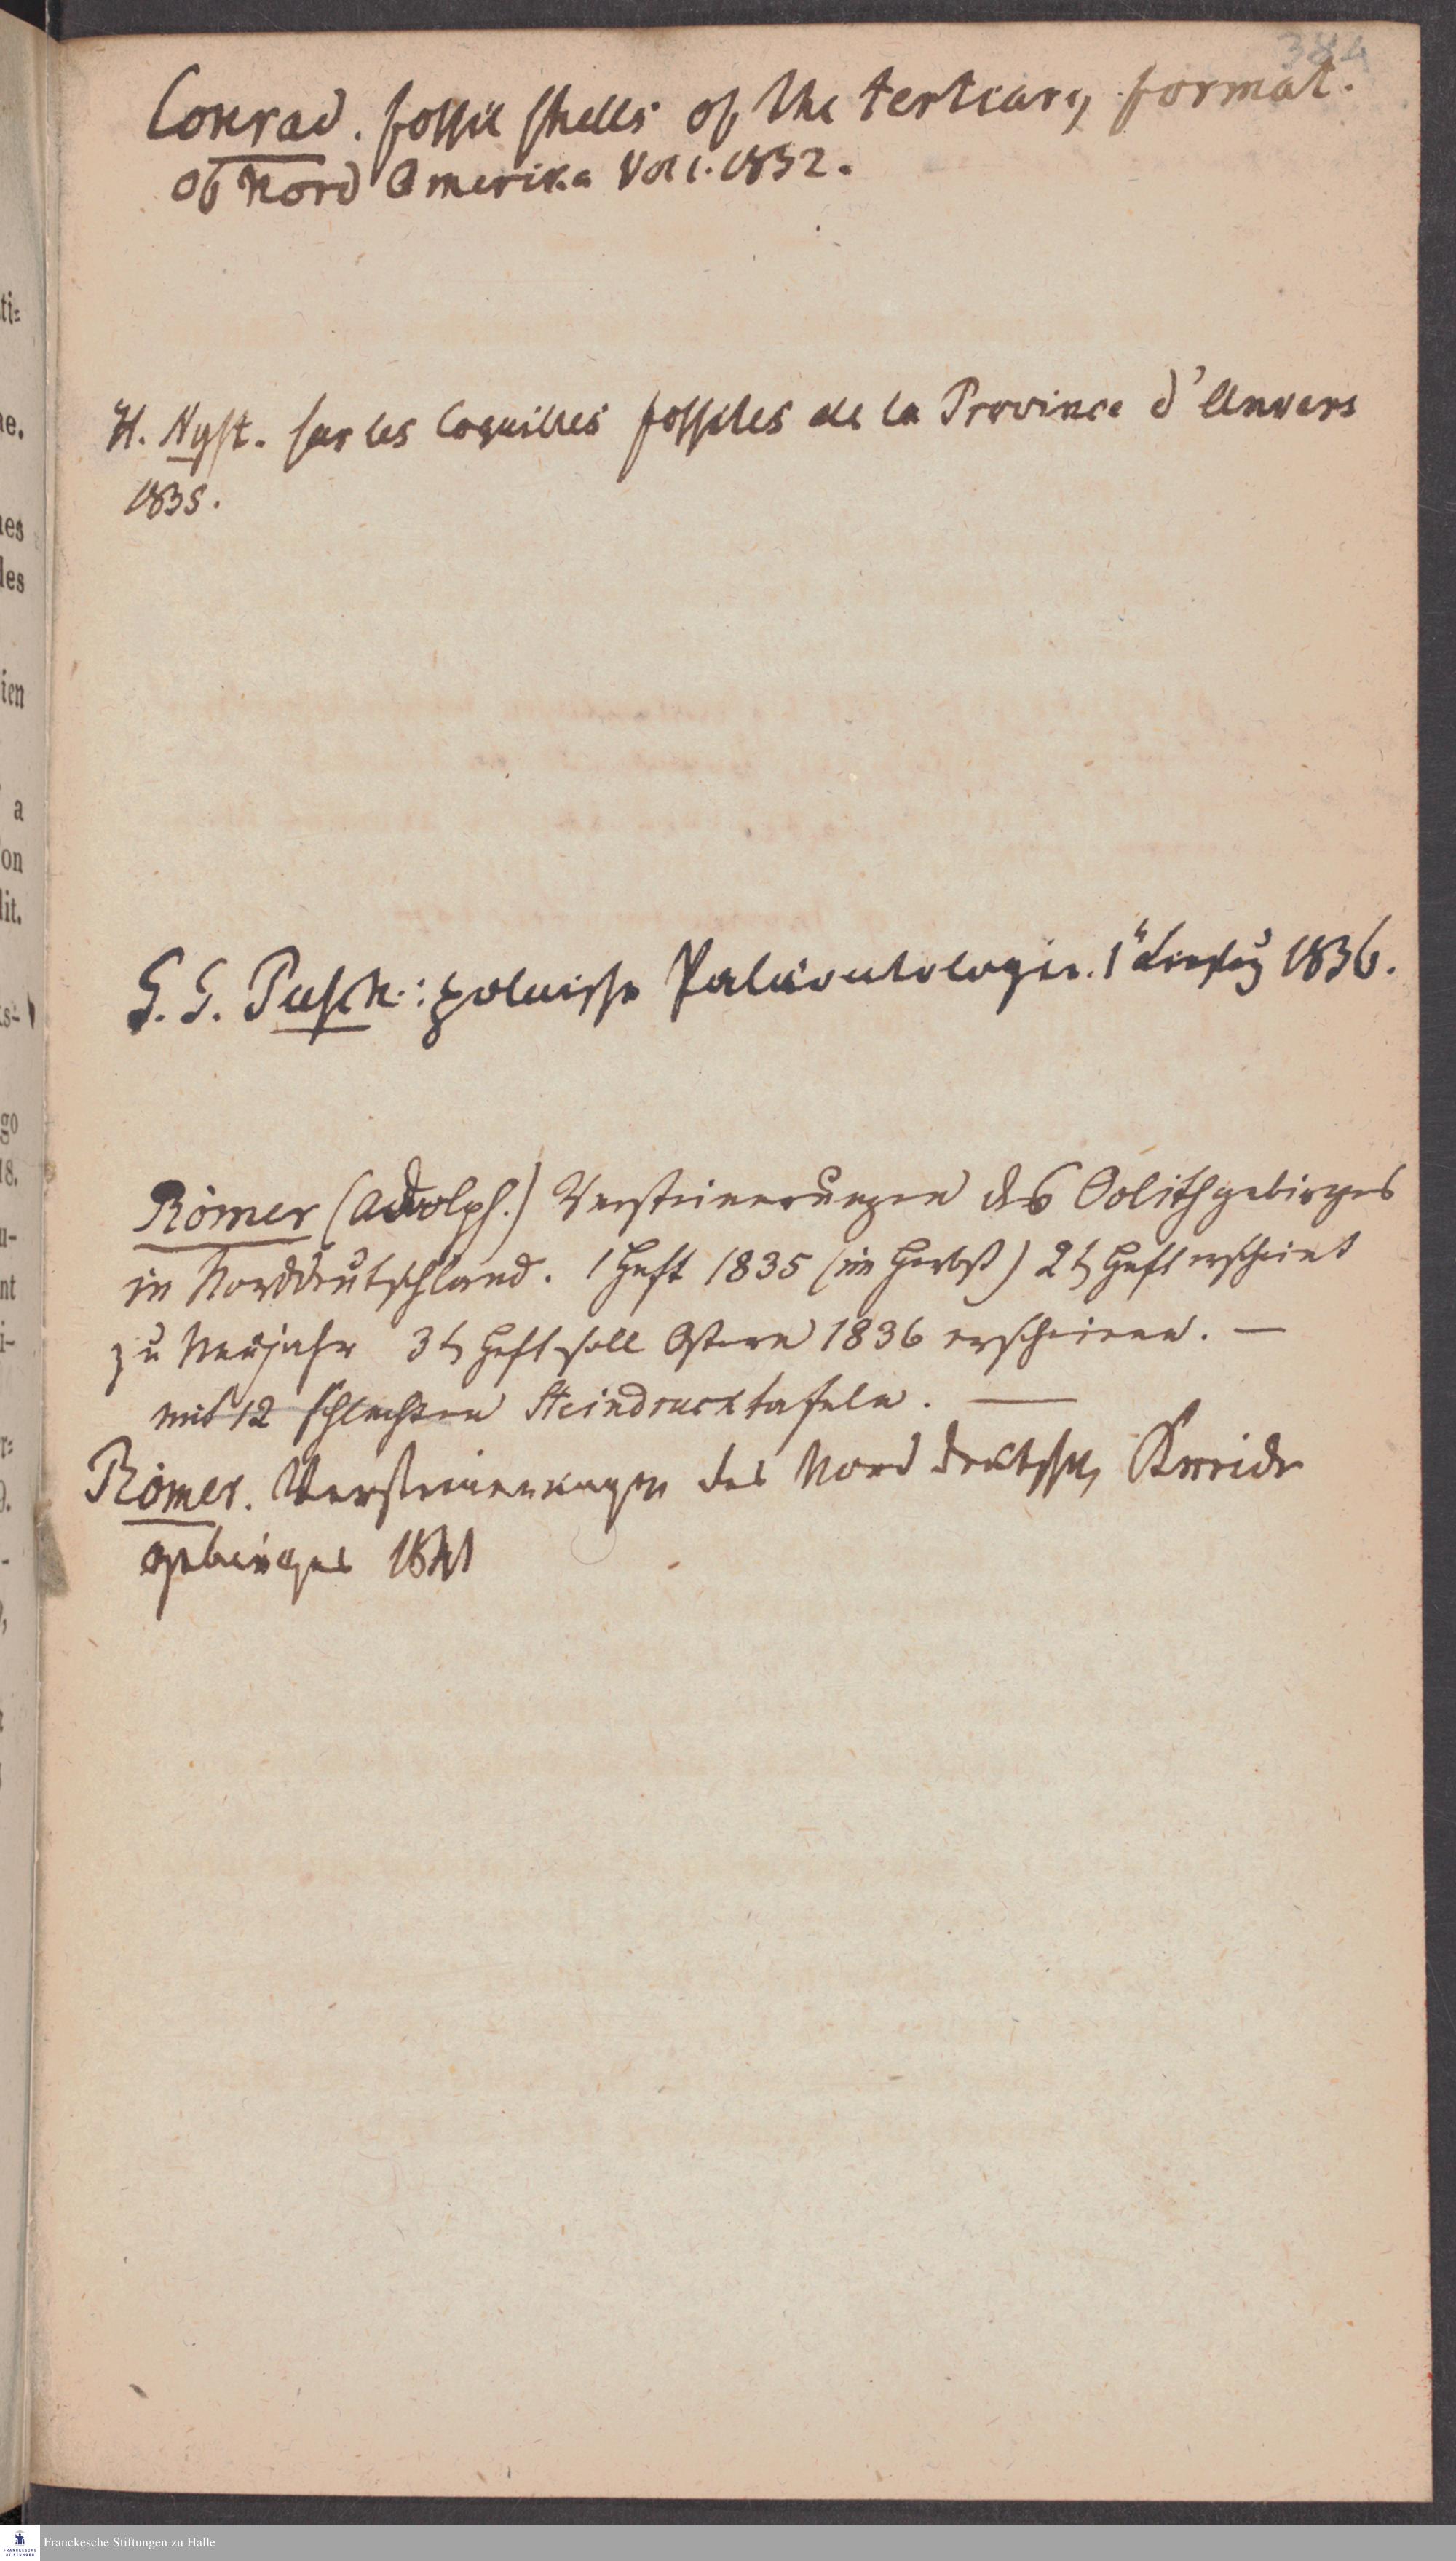 384
Conrad. fossil shells of the tertiary format.
of Nord Amerika Vol 1. 1832.
H. Nyst. sur les Coquilles fossiles de la Province d'Anvers
1835.
G. G. Pusch.: polnische Paläontologie. 1" Liefrg 1836.
Römer (Adolph.) Versteinerungen des Oolithgebirges
in Norddeutschland. 1 Heft 1835 (im Herbst) 2ts Heft erscheint
zu Neujahr 3ts Heft soll Ostern 1836 erscheinen. —
mit 12 schlechten Steindrucktafeln. —
Römer. Versteinerungen des Nord deutschen Kreide
gebirges 1841
ti=
ne.
nes
des
ien
a
on
dit.
go
18.
u-
nt
i-
r=
Franckesche Stiftungen zu Halle